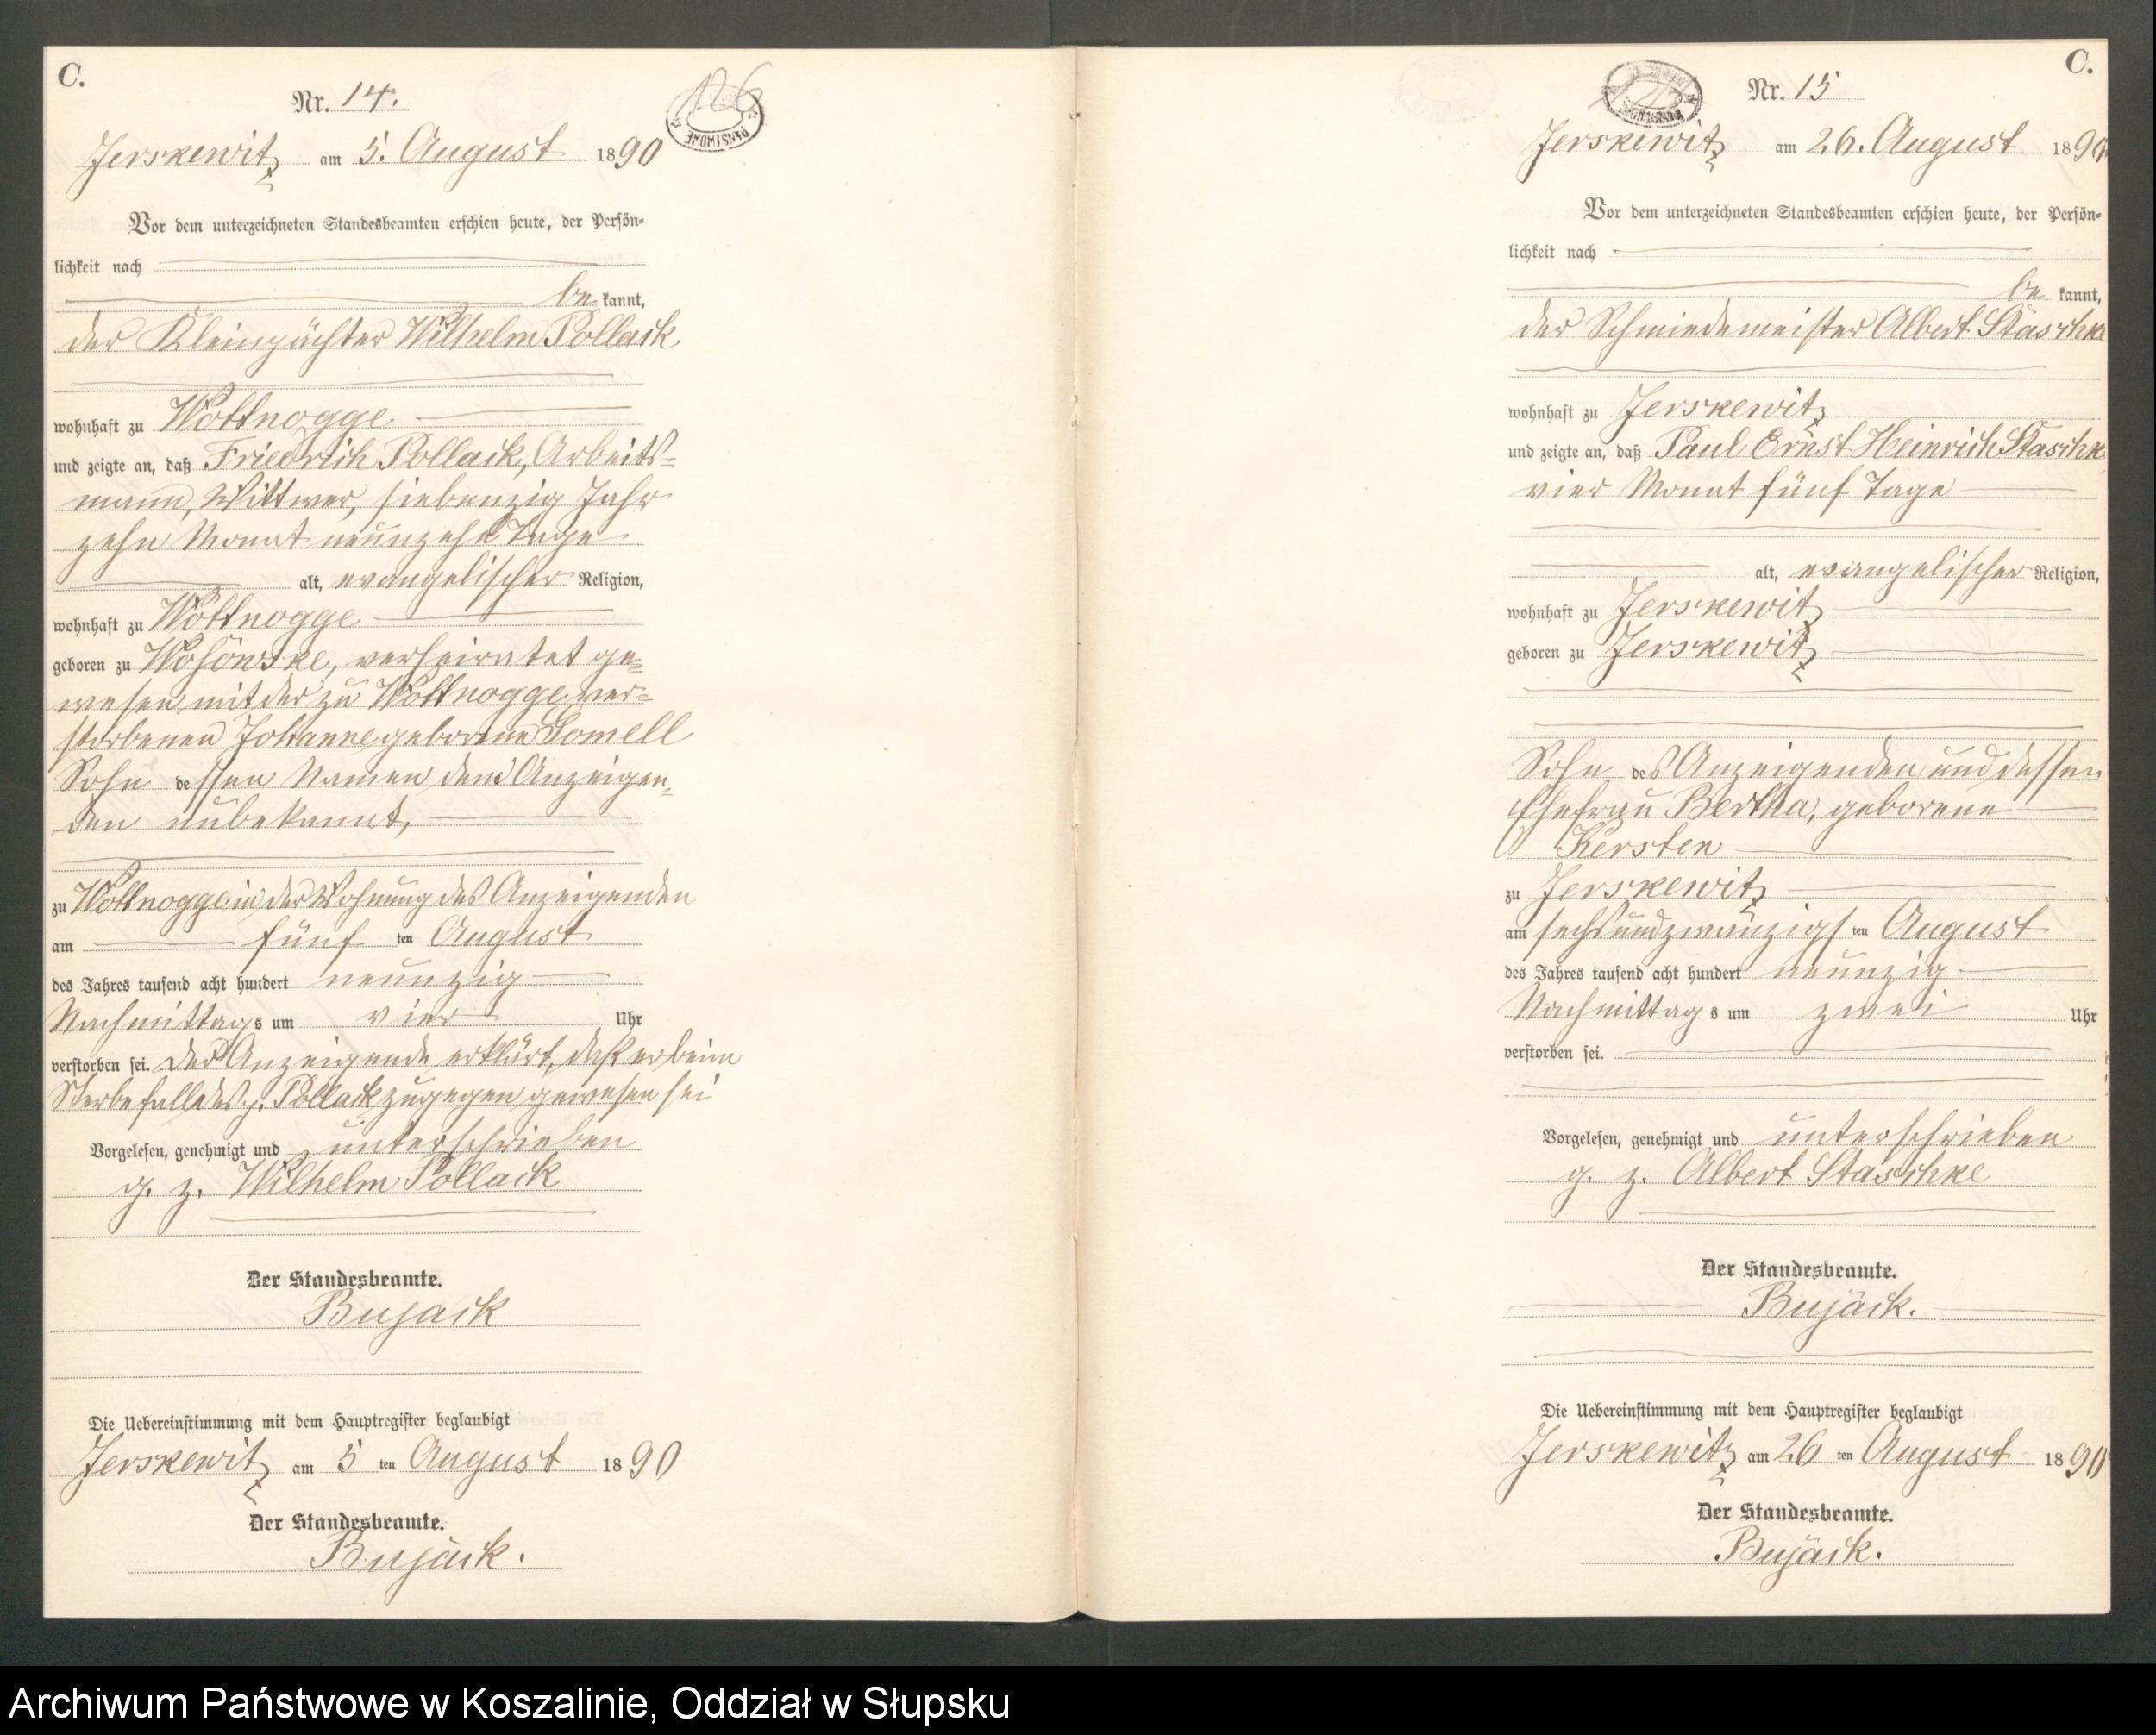 C.
Nr. 14.
126
PAŃSTWOWE
Jerskewitz am 5. August 1890
Vor dem unterzeichneten Standesbeamten erschien heute, der Persön=
lichkeit nach
be kannt,
der Kleinpächter Wilhelm Pollack
wohnhaft zu Wottnogge
und zeigte an, daß Friedrich Pollack, Arbeits=
mann, Wittwer, siebenzig Jahr
zehn Monat neunzehn Tage
alt, evangelischer Religion,
wohnhaft zu Wottnogge
geboren zu verheiratet ge=
wesen mit der zu Wottnogge ver=
storbenen Johanne geborene Gomell
Sohn dessen Namen dem Anzeigen=
den unbekannt,
zu Wottnogge in der Wohnung des Anzeigenden
am fünf ten August
des Jahres tausend acht hundert neunzig
Nachmittags um vier Uhr
verstorben sei. Der Anzeigende erklärt, daß er beim
Sterbefall des p. Pollack zugegen gewesen sei
Vorgelesen, genehmigt und unterschrieben
g. z. Wilhelm Pollack
Der Standesbeamte.
Bujack
Die Uebereinstimmung mit dem Hauptregister beglaubigt
Jerskewitz am 5 ten August 1890
Der Standesbeamte.
Bujack.
C.
Nr. 15
Jerskewitz am 26. August 1890
Vor dem unterzeichneten Standesbeamten erschien heute, der Persön=
lichkeit nach
be kannt,
der Schmiedemeister Albert Staschke
wohnhaft zu Jerskewitz
und zeigte an, daß Paul Ernst Heinrich Staschke
vier Monat fünf Tage
alt, evangelischer Religion,
wohnhaft zu Jerskewitz
geboren zu Jerskewitz
Sohn des Anzeigenden und dessen
Ehefrau Bertha, geborene
Kersten
zu Jerskewitz
am sechsundzwanzigs ten August
des Jahres tausend acht hundert neunzig
Nachmittags um zwei Uhr
verstorben sei.
Vorgelesen, genehmigt und unterschrieben
g. z. Albert Staschke
Der Standesbeamte.
Bujack.
Die Uebereinstimmung mit dem Hauptregister beglaubigt
Jerskewitz am 26 ten August 1890
Der Standesbeamte.
Bujack.
Archiwum Państwowe w Koszalinie, Oddział w Słupsku